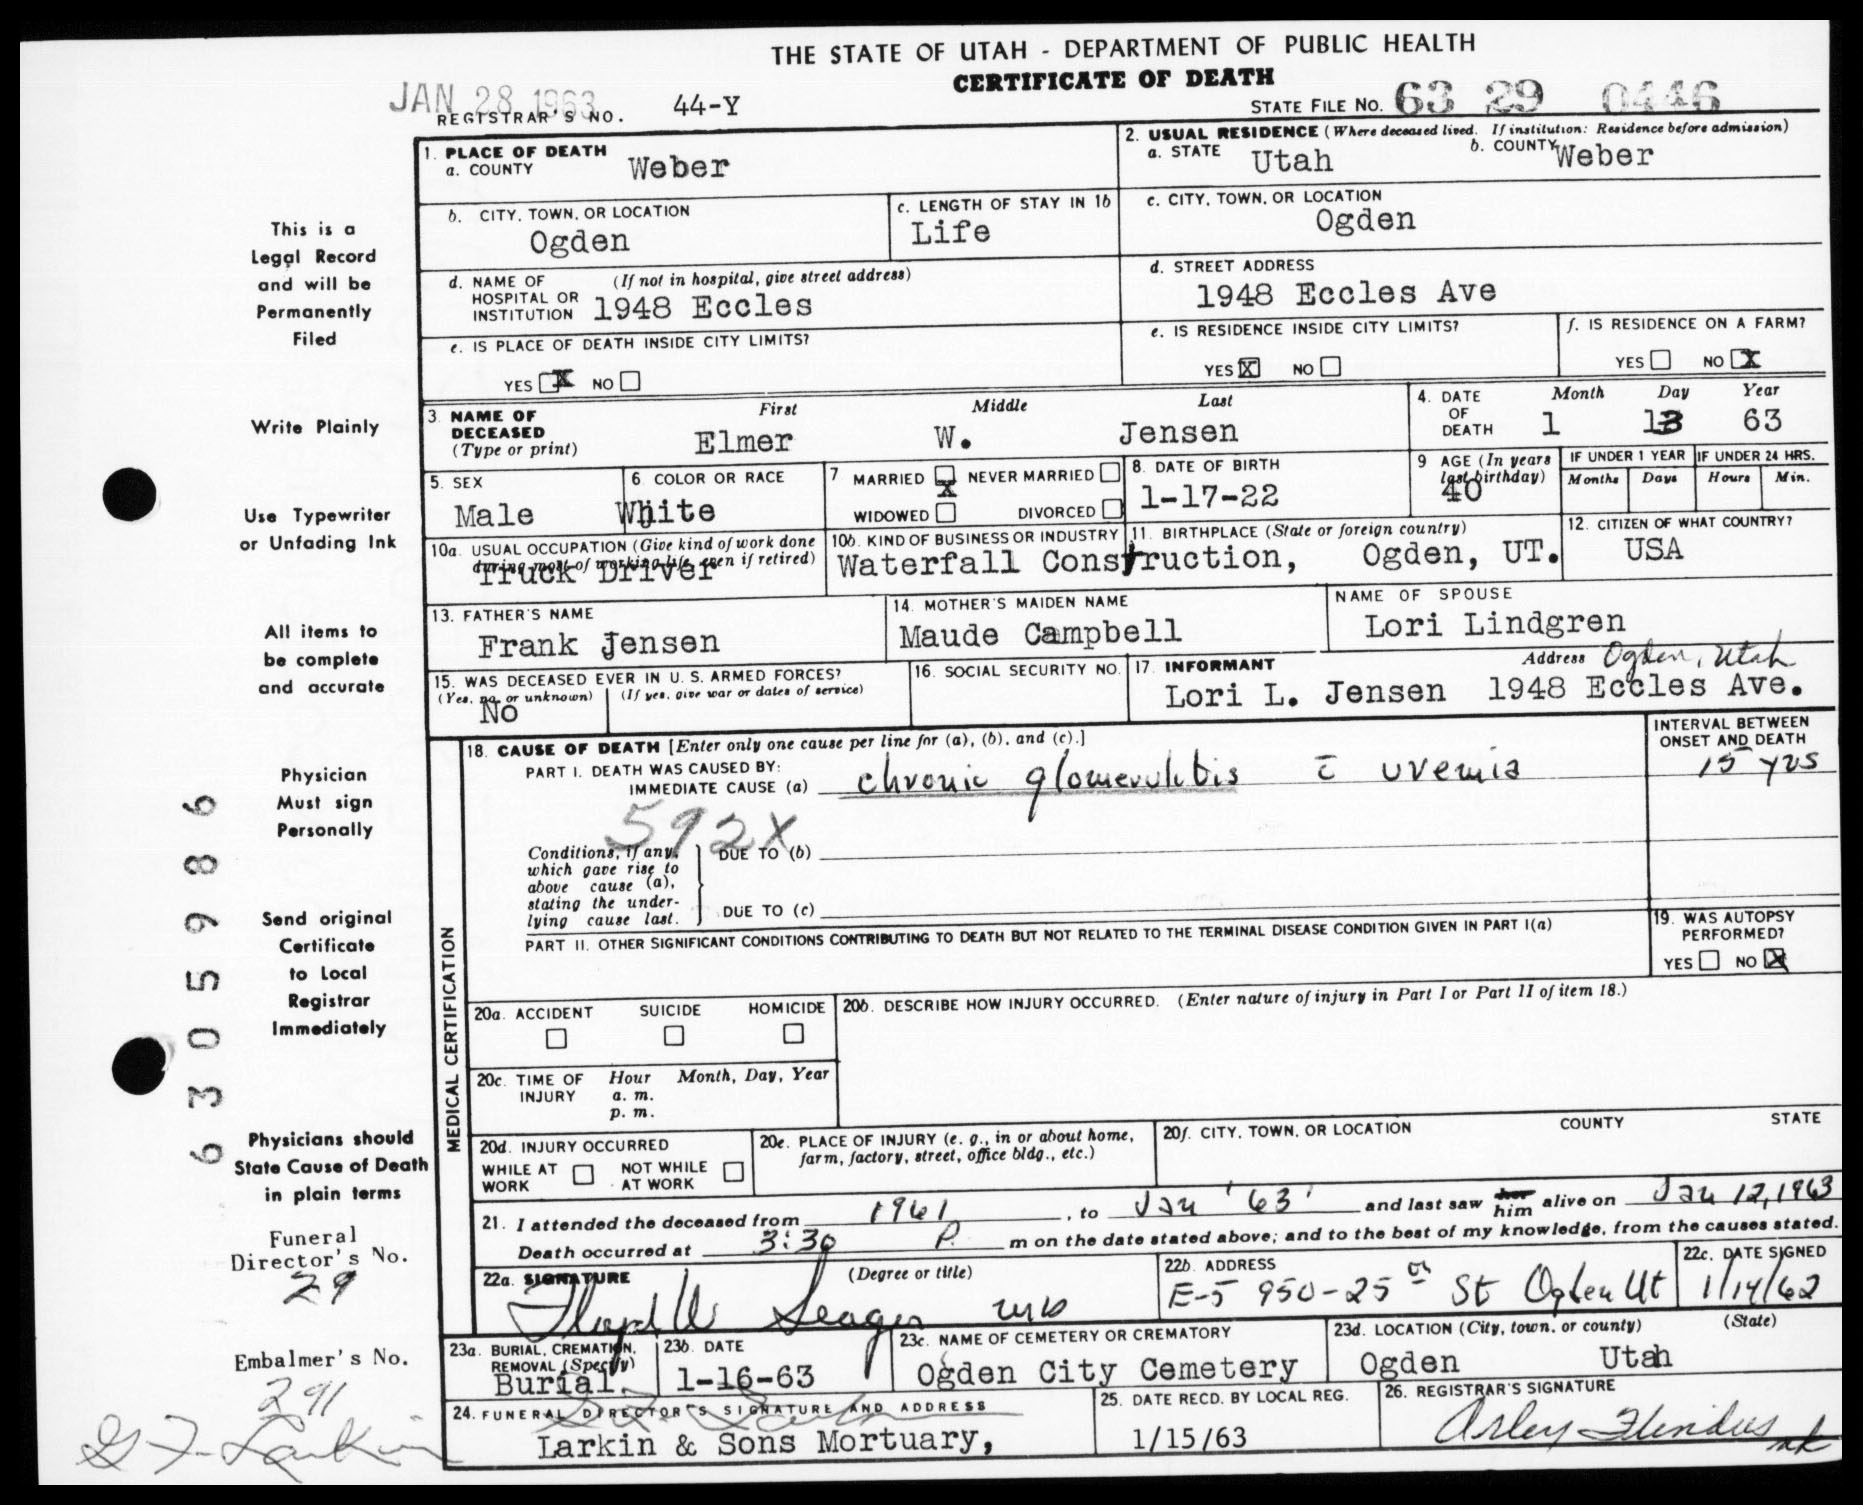 THE STATE OF UTAH - DEPARTMENT OF PUBLIC HEALTH
CERTIFICATE OF DEATH
JAN 28 1963
REGISTRAR'S NO. 44-Y
STATE FILE NO. 63 29 0446
1. PLACE OF DEATH
a. COUNTY Weber
2. USUAL RESIDENCE (Where deceased lived. If institution: Residence before admission)
a. STATE Utah b. COUNTY Weber
b. CITY, TOWN, OR LOCATION Ogden
c. LENGTH OF STAY IN 1b Life
c. CITY, TOWN, OR LOCATION Ogden
d. NAME OF HOSPITAL OR INSTITUTION (If not in hospital, give street address) 1948 Eccles
d. STREET ADDRESS 1948 Eccles Ave
e. IS PLACE OF DEATH INSIDE CITY LIMITS?
YES X NO
e. IS RESIDENCE INSIDE CITY LIMITS?
YES X NO
f. IS RESIDENCE ON A FARM?
YES NO X
3. NAME OF DECEASED (Type or print)
First Middle Last
Elmer W. Jensen
4. DATE OF DEATH Month Day Year
1 13 63
5. SEX Male
6. COLOR OR RACE White
7 MARRIED X NEVER MARRIED
WIDOWED DIVORCED
8. DATE OF BIRTH 1-17-22
9 AGE (In years last birthday) 40
IF UNDER 1 YEAR Months Days
IF UNDER 24 HRS. Hours Min.
10a. USUAL OCCUPATION (Give kind of work done during most of working life, even if retired) Truck Driver
10b. KIND OF BUSINESS OR INDUSTRY Waterfall Construction,
11. BIRTHPLACE (State or foreign country) Ogden, UT.
12. CITIZEN OF WHAT COUNTRY? USA
13. FATHER'S NAME Frank Jensen
14. MOTHER'S MAIDEN NAME Maude Campbell
NAME OF SPOUSE Lori Lindgren
15. WAS DECEASED EVER IN U. S. ARMED FORCES?
(Yes, no, or unknown) (If yes, give war or dates of service)
No
16. SOCIAL SECURITY NO.
17. INFORMANT Address Ogden, Utah
Lori L. Jensen 1948 Eccles Ave.
MEDICAL CERTIFICATION
18. CAUSE OF DEATH [Enter only one cause per line for (a), (b), and (c).]
INTERVAL BETWEEN ONSET AND DEATH
PART I. DEATH WAS CAUSED BY:
IMMEDIATE CAUSE (a) chronic glomerulitis c̄ uremia 15 yrs
592X
Conditions, if any, which gave rise to above cause (a), stating the underlying cause last.
DUE TO (b)
DUE TO (c)
PART II. OTHER SIGNIFICANT CONDITIONS CONTRIBUTING TO DEATH BUT NOT RELATED TO THE TERMINAL DISEASE CONDITION GIVEN IN PART I(a)
19. WAS AUTOPSY PERFORMED?
YES NO X
20a. ACCIDENT SUICIDE HOMICIDE
20b. DESCRIBE HOW INJURY OCCURRED. (Enter nature of injury in Part I or Part II of item 18.)
20c. TIME OF INJURY Hour Month, Day, Year
a. m.
p. m.
20d. INJURY OCCURRED
WHILE AT WORK NOT WHILE AT WORK
20e. PLACE OF INJURY (e. g., in or about home, farm, factory, street, office bldg., etc.)
20f. CITY, TOWN, OR LOCATION COUNTY STATE
21. I attended the deceased from 1961, to Jan '63' and last saw her him alive on Jan 12, 1963
Death occurred at 3:30 P. m on the date stated above; and to the best of my knowledge, from the causes stated.
22a. SIGNATURE (Degree or title)
Floyd W Seager MD
22b. ADDRESS
E-5 950-25th St Ogden Ut
22c. DATE SIGNED
1/14/62
23a. BURIAL, CREMATION, REMOVAL (Specify) Burial
23b. DATE 1-16-63
23c. NAME OF CEMETERY OR CREMATORY Ogden City Cemetery
23d. LOCATION (City, town, or county) (State) Ogden Utah
24. FUNERAL DIRECTOR'S SIGNATURE AND ADDRESS
Larkin & Sons Mortuary,
25. DATE RECD. BY LOCAL REG. 1/15/63
26. REGISTRAR'S SIGNATURE
Arley Flinders
This is a
Legal Record
and will be
Permanently
Filed
Write Plainly
Use Typewriter
or Unfading Ink
All items to
be complete
and accurate
Physician
Must sign
Personally
Send original
Certificate
to Local
Registrar
Immediately
Physicians should
State Cause of Death
in plain terms
Funeral
Director's No.
29
Embalmer's No.
291
G F Larkin
6305986